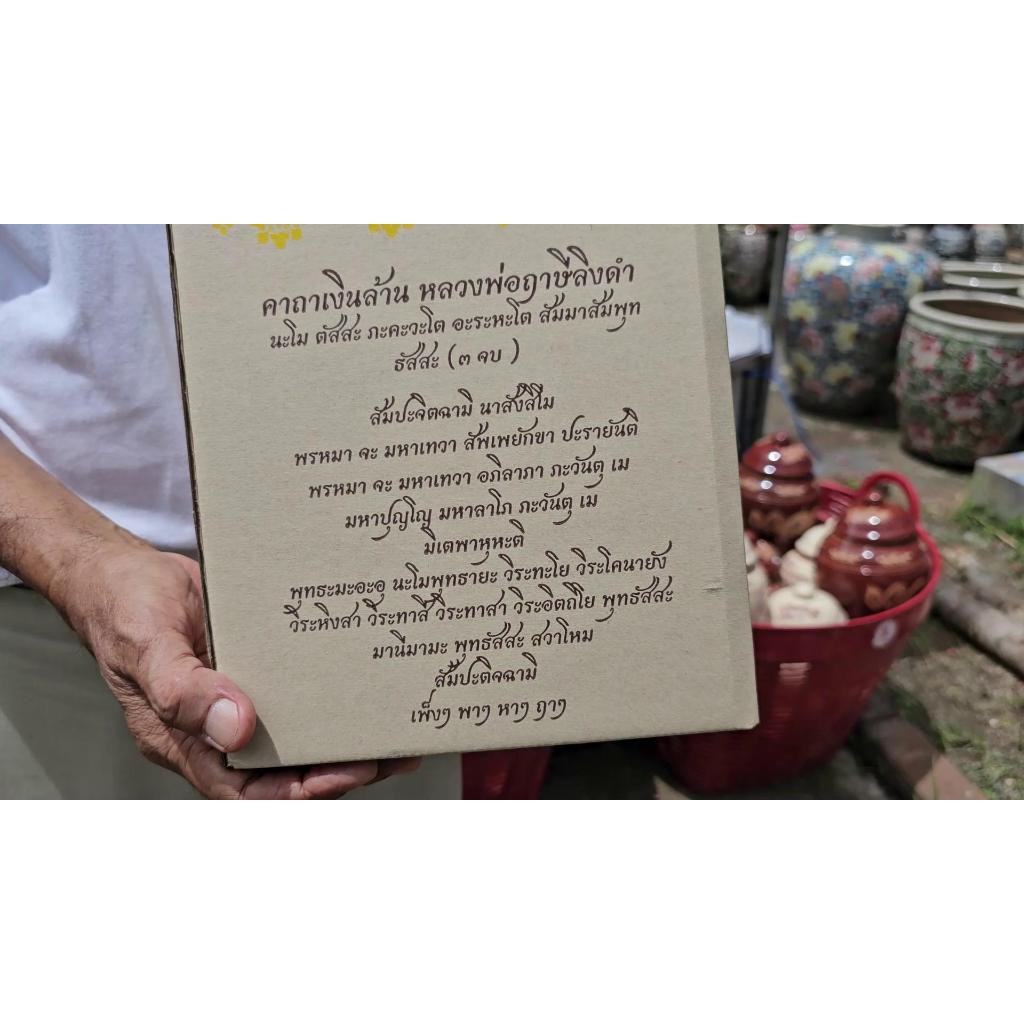 คาถาเงินล้าน หลวงพ่อฤาษีลิงดำ
นะโม ตัสสะ ภะคะวะโต อะระหะโต สัมมาสัมพุท
ธัสสะ (๓ จบ )
สัมปะจิตฉามิ นาสังสิโม
พรหมา จะ มหาเทวา สัพเพยักขา ปะรายันติ
พรหมา จะ มหาเทวา อภิลาภา ภะวันตุ เม
มหาปุญโญ มหาลาโภ ภะวันตุ เม
มิเตพาหุหะติ
พุทธะมะอะอุ นะโมพุทธายะ วิระทะโย วิระโคนายัง
วิระหิงสา วิระทาสี วิระทาสา วิระอิตถิโย พุทธัสสะ
มานีมามะ พุทธัสสะ สวาโหม
สัมปะติจฉามิ
เพ็งๆ พาๆ หาๆ ฤาๆ